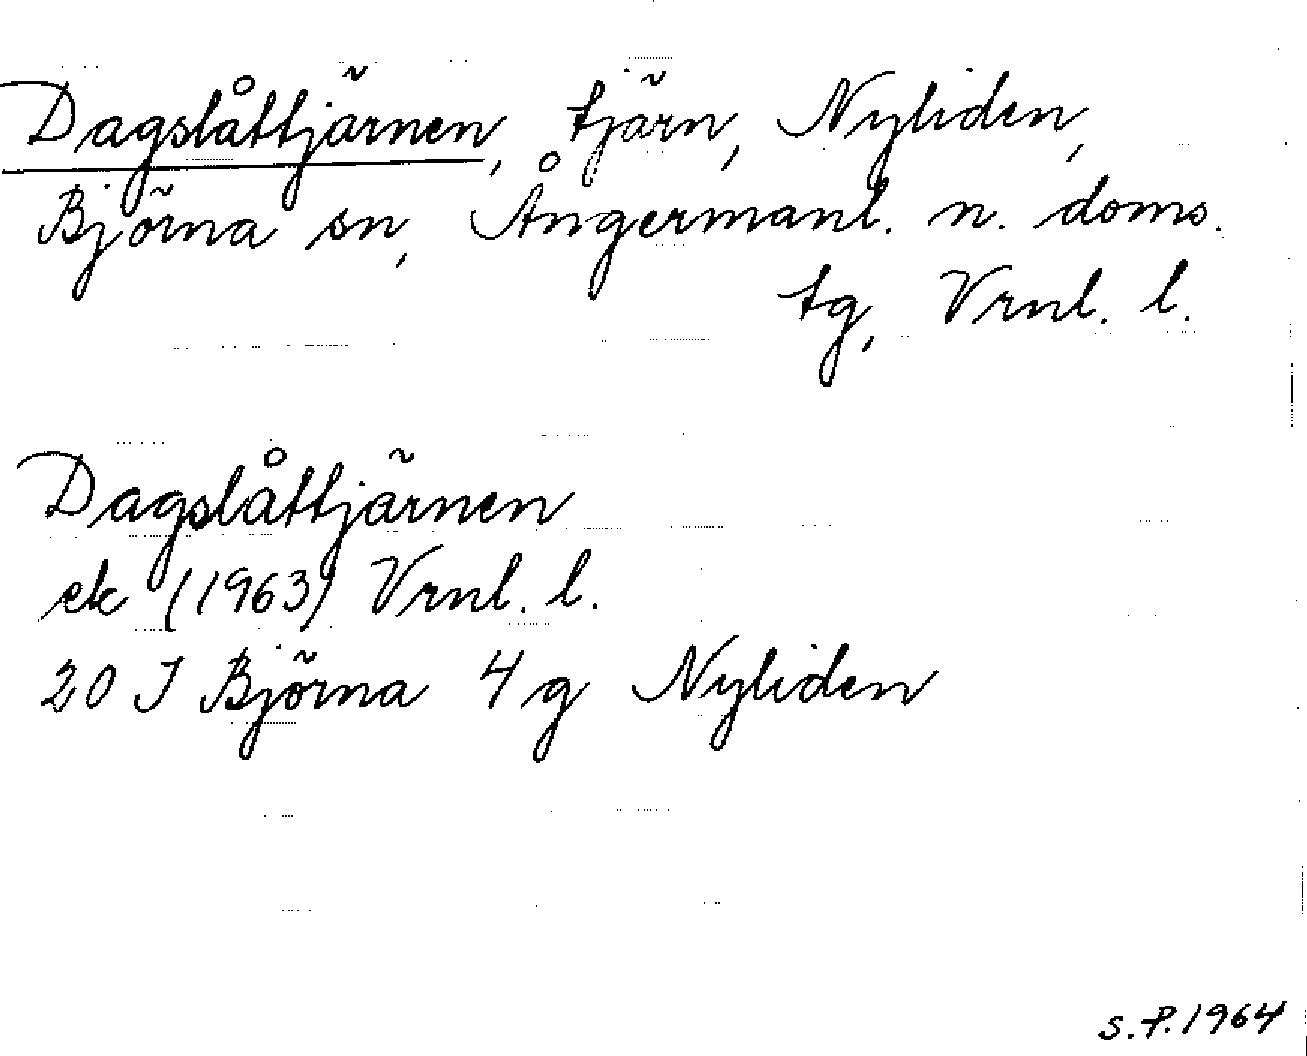 Dagslåttjärnen, tjärn, Nyliden,
Björna sn, Ångermanl. n. doms.
tg, Vrnl. l.
Dagslåttjärnen
ek (1963) Vrnl. l.
20 I Björna 4 g Nyliden
S.P. 1964